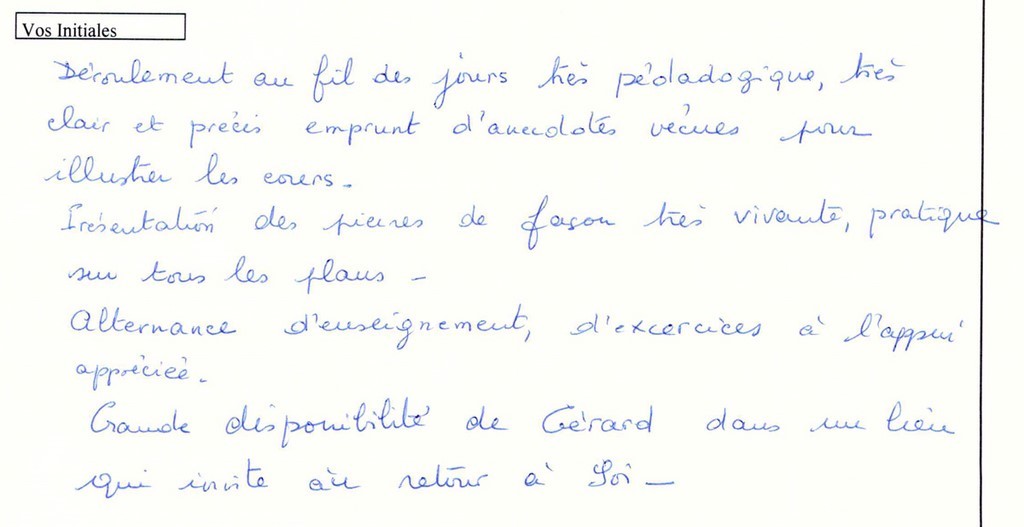 Vos Initiales
Déroulement au fil des jours très pédadogique, très
clair et précis emprunt d'anecdotes vécues pour
illustrer les cours.
Présentation des pierres de façon très vivante, pratique
sur tous les plans -
Alternance d'enseignement, d'excercices à l'appui
appréciée.
Grande disponibilité de Gérard dans un lieu
qui invite au retour à Soi -